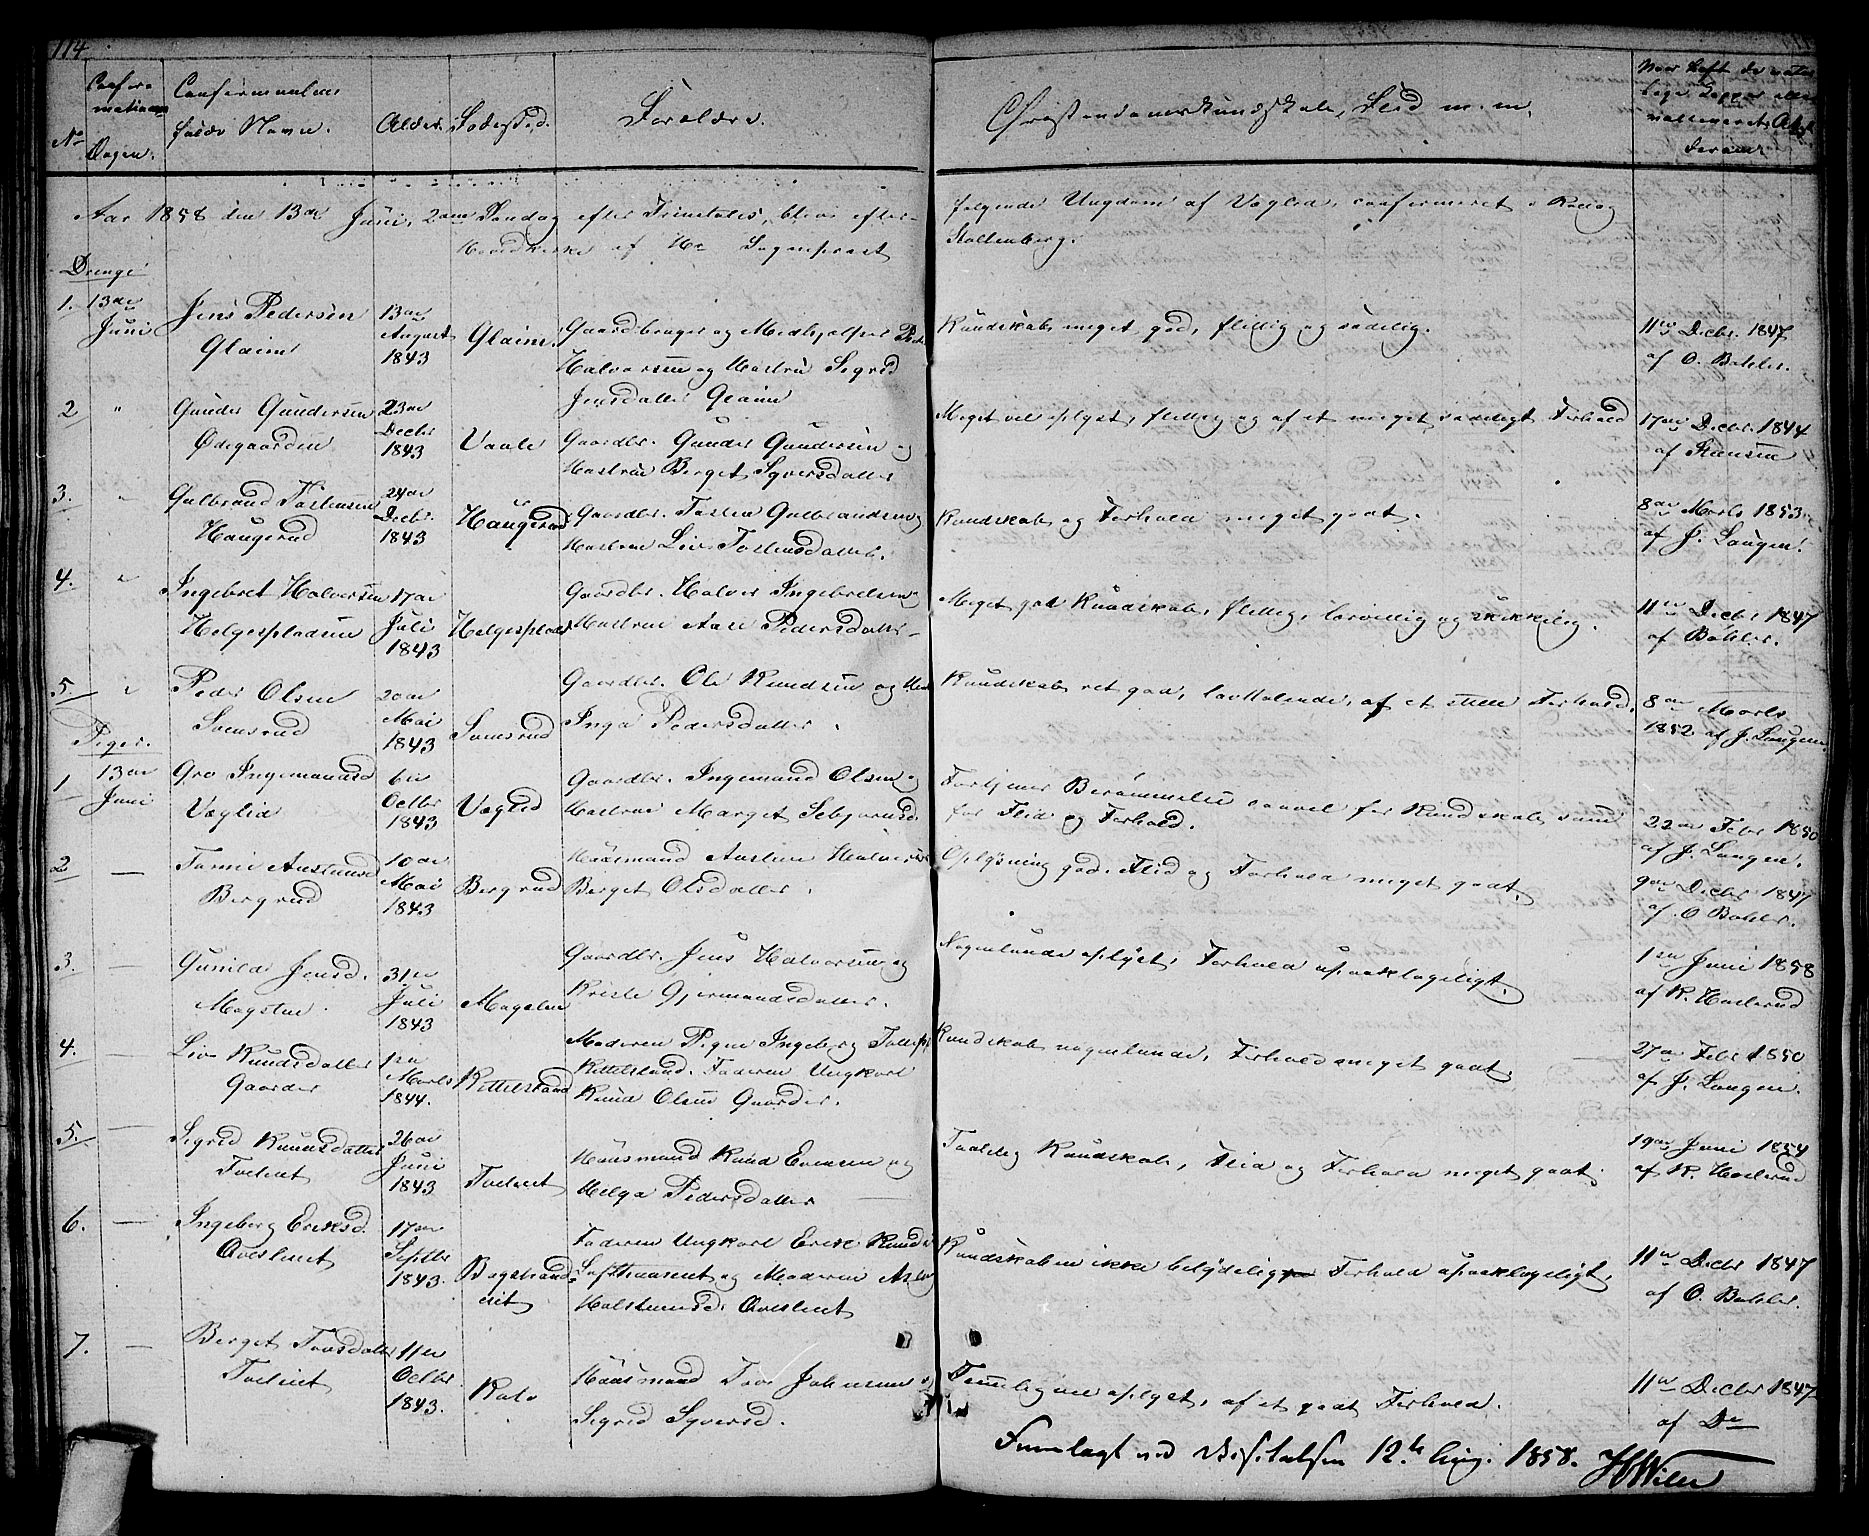 114
No
Confirmationsdagen.
Confirmandens fulde Navn.
Alder.
Fødested.
Forældre.
Christendomskundskab, Flid m. m.
Naar havt de naturlige Kopper eller vaccineret,
Aar 1858 den 13de Juni, 2den Søndag efter Trinitatis, blev efterfølgende Ungdom af Væglid, confirmeret i Rollag
Hovedkirke af Hr Sogneprest Stoltenberg.
Drenge
1. 13de Juni
Jens Pedersen Glaim
13de August 1843
Glaim
Gaardbruger og Medhjelper Peder Halvorsen og Hustru Sigrid Jensdatter Glaim
Kundskab meget god, flittig og sædelig.
11te Decbr. 1847 af O. Bøhler.
2 "
Gunder Gundersen Ødegaarden
23de Decbr 1843
Vaale
Gaardbr. Gunder Gundersen og Hustru Berget Syversdatter
Meget vel oplyst, flittig og af et meget sædeligt Forhold
17de Decbr. 1844 af Steensen
3. "
Gulbrand Tostensen Haugerud
24de Decbr. 1843
Haugerud
Gaardbr. Tosten Gulbrandsen og Hustru Liv Tostensdatter.
Kundskab og Forhold meget godt.
8de Marts 1853 af J. Laugen.
4. "
Ingebret Halvorsen Helgespladsen
17de Juli 1843
Helgesplads
Gaardbr. Halvor Ingebretsen og Hustru Aase Pedersdatter
Meget god Kundskab, flittig, lærvillig og skikkelig.
11te Decbr 1847 af Bøhler.
5. "
Peder Olsen Somrud
20de Mai 1843
Somrud
Gaardbr. Ole Knudsen og Inga Pedersdatter.
Kundskab ret god, lavttalende, af et stille Forhold.
8de Marts 1852 af J. Laugen
Piger.
1 13de Juni
Gro Ingemandsd Væglid
6te Octbr 1843
Væglid
Gaardbr. Ingemund Olsen og Hustrue Marget Sebjørnsd
Fortjener Berømmelse saavel for Kundskab som for Flid og Forhold.
22de Febr 1850 af J. Laugen.
2 —
Tonne Austensd Bergrud
10de Mai 1843
Bergrud
Huusmand Austen Halvorsen Berget Olsdatter.
Oplysning god, Flid og Forhold meget godt.
9de Decbr 1847 af O Bøhler.
3. —
Gunild Jensd. Mogsten
31te Juli 1843
Mogsten
Gaardbr. Jens Halvorsen og Kristi Gjermundsdatter.
Nogenlunde oplyst, Forhold upaaklageligt.
1ste Juni 1858 af K. Haslerud
4. —
Liv Knudsdatter Gaarder
1ste Marts 1844.
Kittelsland
Moderen Pige Ingeborg Kittelsland. Faderen Ungkarl Knud Olsen Gaarder.
Kundskab nogenlunde, Forhold meget godt.
27de Febr 1850 af J. Laugen.
5. —
Sigrid Knudsdatter Tveitent
26de Juni 1843
Tveitent
Huusmand Knud Evensen og Helga Pedersdatter
Taalelig Kundskab, Flid og Forhold meget godt.
19de Juni 1854 af K. Haslerud
6. —
Ingeborg Eriksd.
17de Septbr 1843.
Faderen Ungkarl Erik Knuds og Moderen
Kundskaben ikke betydelig, Forhold upaaklageligt.
11te Decbr 1847 af O. Bøhler.
7. —
Berget Toresdatter Tveitent
11te Octbr 1843.
Huusmand Tore Johnsen og Sigrid Syversd.
Temmelig vel oplyst, af et godt Forhold.
11te Decbr 1847 af Do
Fremlagt ved Visitatsen 12te Aug. 1858.